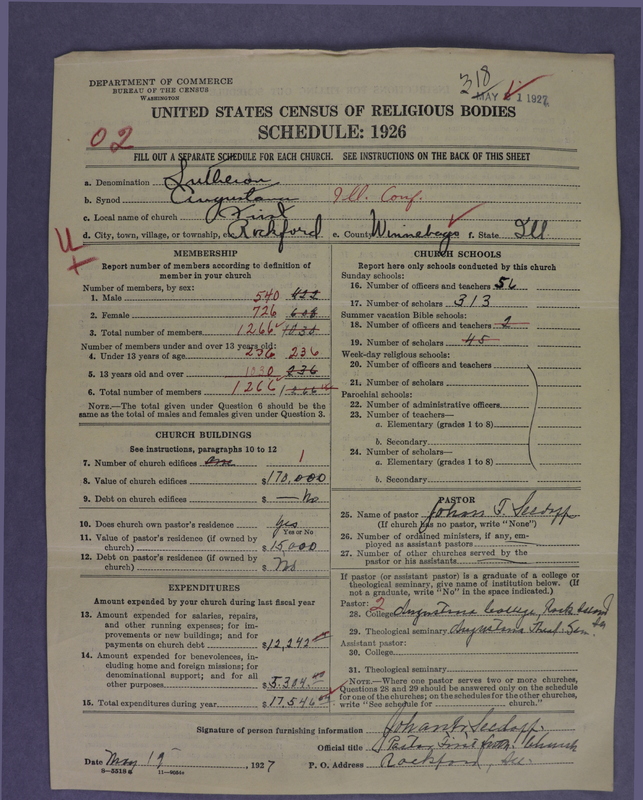 318
MAY 21 1927
DEPARTMENT OF COMMERCE
BUREAU OF THE CENSUS
WASHINGTON
UNITED STATES CENSUS OF RELIGIOUS BODIES
SCHEDULE: 1926
02
FILL OUT A SEPARATE SCHEDULE FOR EACH CHURCH. SEE INSTRUCTIONS ON THE BACK OF THIS SHEET
a. Denomination Lutheran
b. Synod Augustana Ill. Conf.
c. Local name of church First
d. City, town, village, or township, etc. Rockford e. County Winnebago f. State Ill
MEMBERSHIP
Report number of members according to definition of
member in your church
Number of members, by sex:
1. Male 540 422
2. Female 726 608
3. Total number of members 1266 1030
Number of members under and over 13 years old:
4. Under 13 years of age 236 236
5. 13 years old and over 1030 236
6. Total number of members 1266 1266
NOTE.—The total given under Question 6 should be the
same as the total of males and females given under Question 3.
CHURCH BUILDINGS
See instructions, paragraphs 10 to 12
7. Number of church edifices one 1
8. Value of church edifices $170,000
9. Debt on church edifices $ — No
10. Does church own pastor's residence yes
Yes or No
11. Value of pastor's residence (if owned by
church) $15,000
12. Debt on pastor's residence (if owned by
church) $ No
EXPENDITURES
Amount expended by your church during last fiscal year
13. Amount expended for salaries, repairs,
and other running expenses; for im-
provements or new buildings; and for
payments on church debt $12,242.00
14. Amount expended for benevolences, in-
cluding home and foreign missions; for
denominational support; and for all
other purposes $5,304.00
15. Total expenditures during year $17,546.00
CHURCH SCHOOLS
Report here only schools conducted by this church
Sunday schools:
16. Number of officers and teachers 56
17. Number of scholars 313
Summer vacation Bible schools:
18. Number of officers and teachers 2
19. Number of scholars 45
Week-day religious schools:
20. Number of officers and teachers
21. Number of scholars
Parochial schools:
22. Number of administrative officers
23. Number of teachers—
a. Elementary (grades 1 to 8)
b. Secondary
24. Number of scholars—
a. Elementary (grades 1 to 8)
b. Secondary
PASTOR
25. Name of pastor Johan T. Seedoff
(If church has no pastor, write "None")
26. Number of ordained ministers, if any, em-
ployed as assistant pastors
27. Number of other churches served by the
pastor or his assistants
If pastor (or assistant pastor) is a graduate of a college or
theological seminary, give name of institution below. (If
not a graduate, write "No" in the space indicated.)
Pastor: 2
28. College Augustana College, Rock Island
29. Theological seminary Augustana Theol. Sem.
Assistant pastor:
30. College
31. Theological seminary
NOTE.—Where one pastor serves two or more churches,
Questions 28 and 29 should be answered only on the schedule
for one of the churches; on the schedules for the other churches,
write "See schedule for church."
Signature of person furnishing information Johan T. Seedoff
Official title Pastor First Luth. Church
Date May 19, 1927 P. O. Address Rockford, Ill.
8—5519a 11—9084a